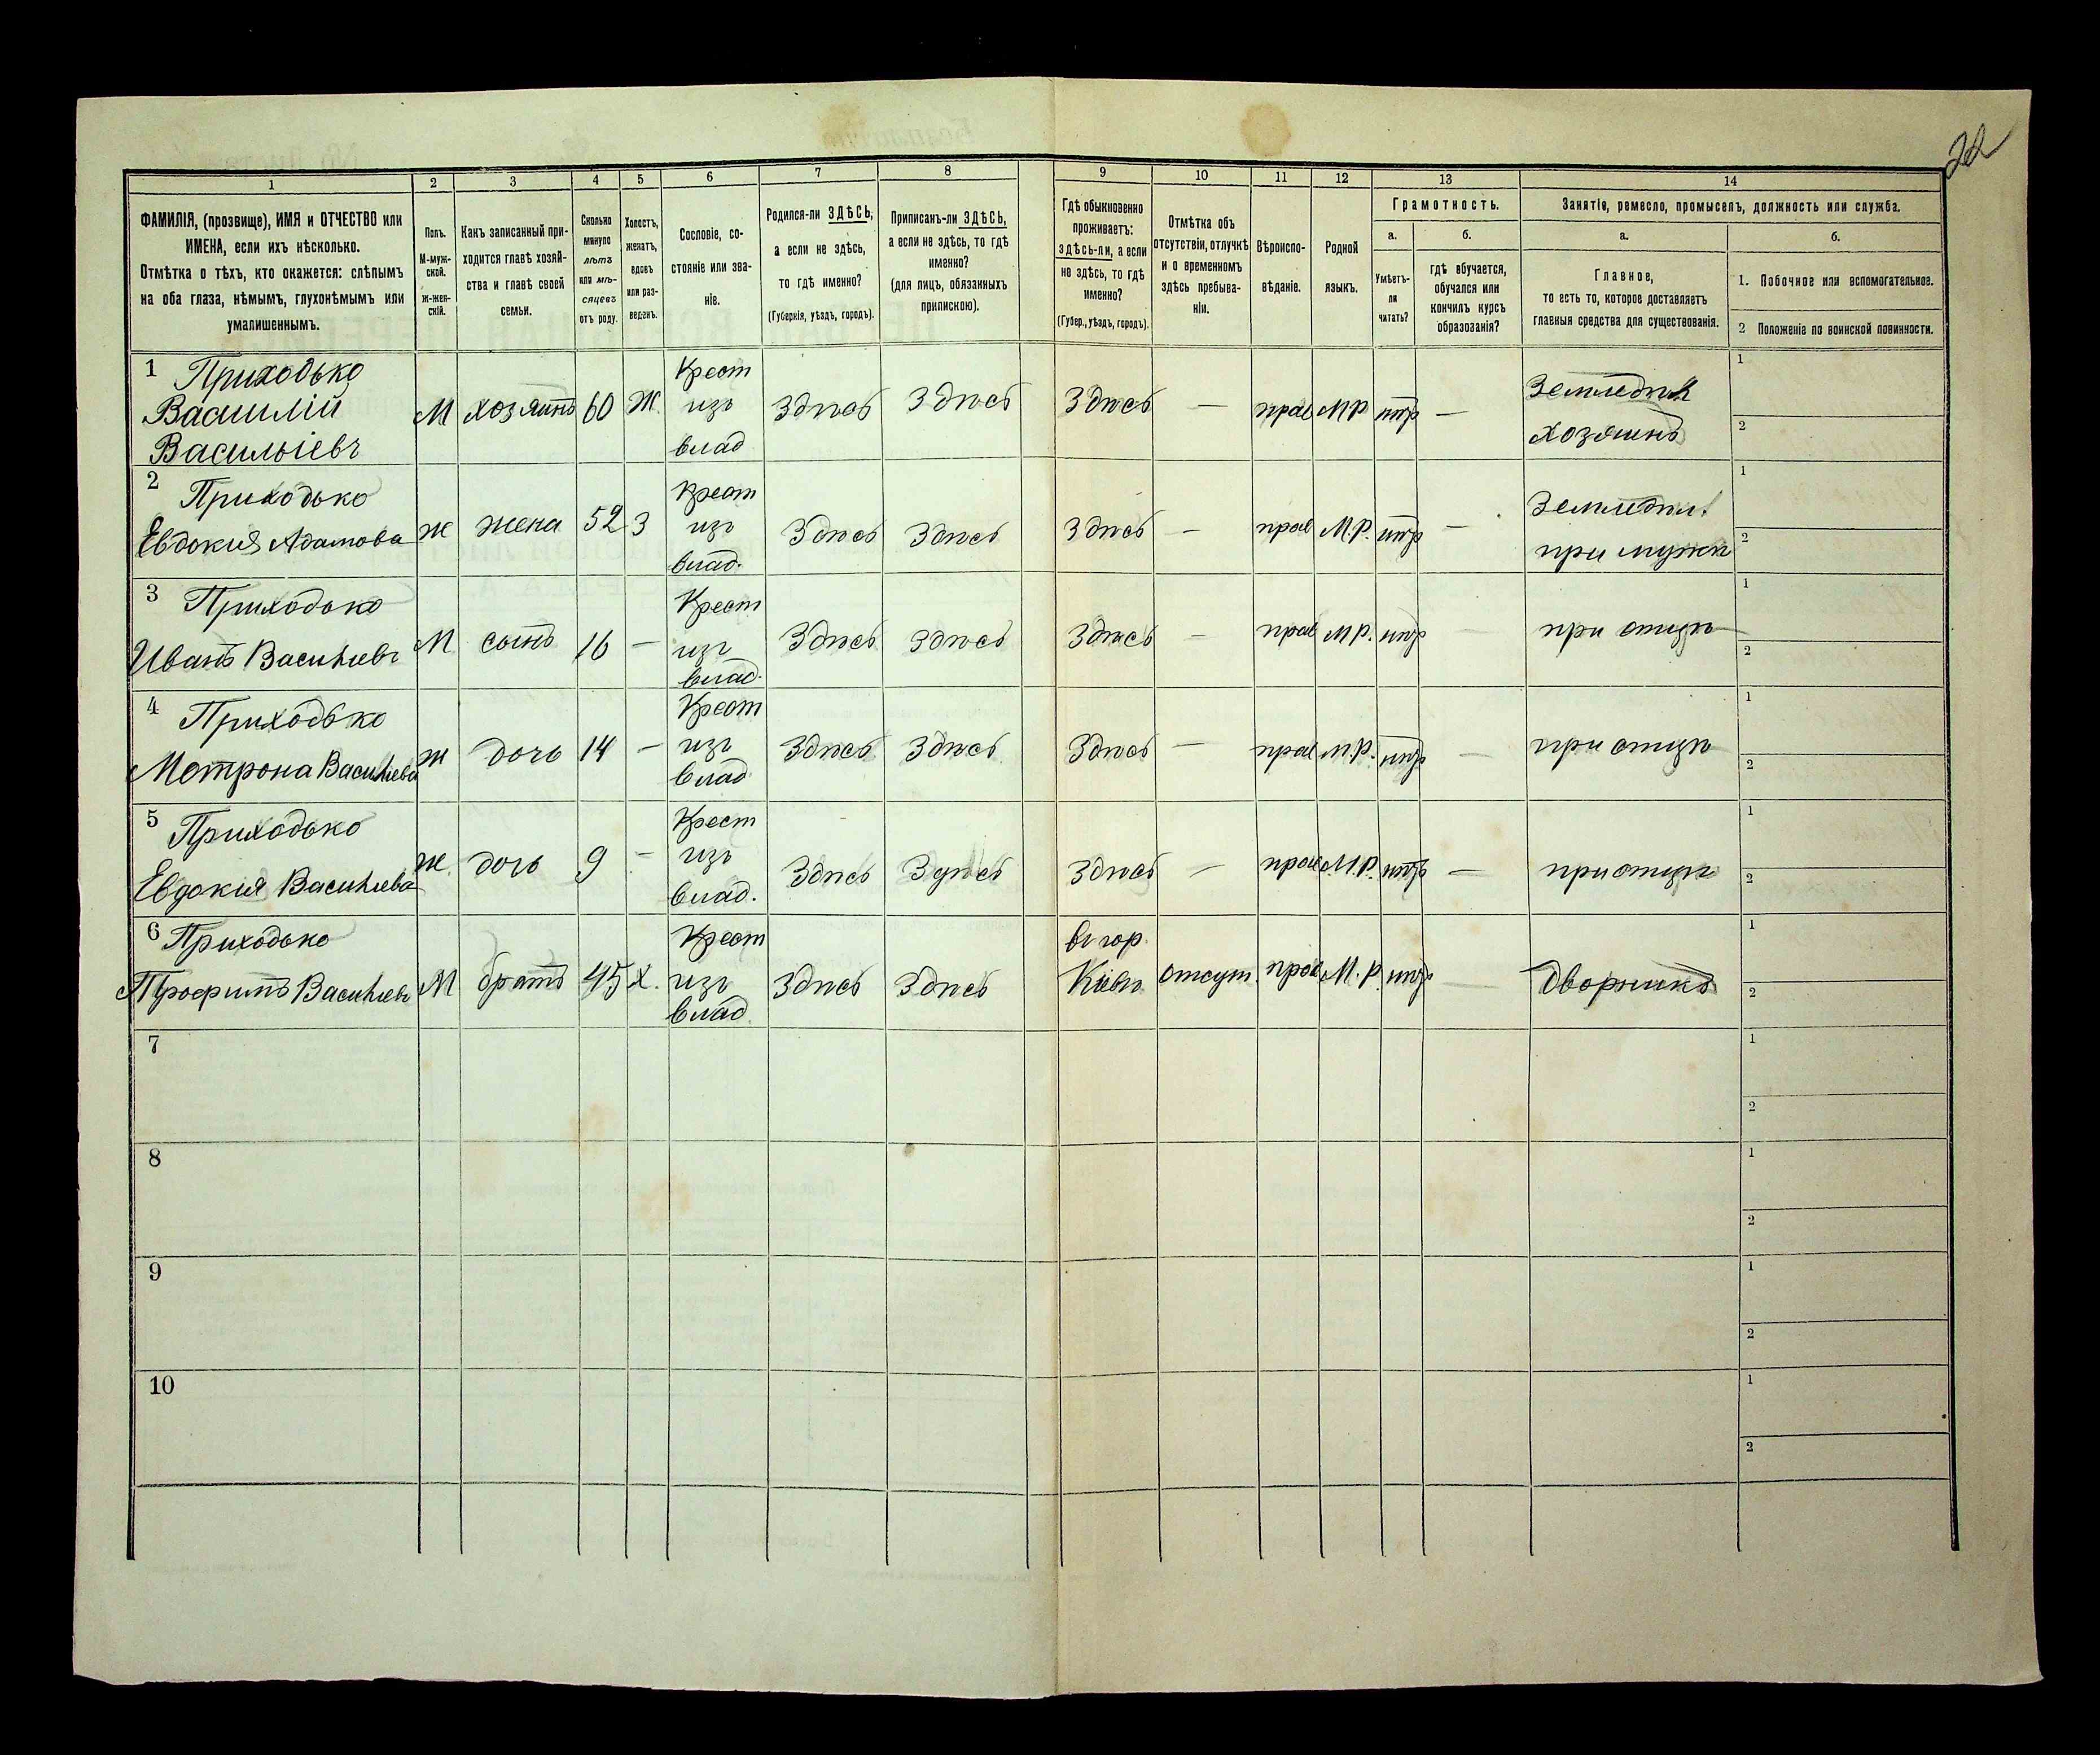 22
1 2 3 4 5 6 7 8 9 10 11 12 13 14
ФАМИЛІЯ, (прозвище), ИМЯ и ОТЧЕСТВО или
ИМЕНА, если ихъ нѣсколько.
Отмѣтка о тѣхъ, кто окажется: слѣпымъ
на оба глаза, нѣмымъ, глухонѣмымъ или
умалишеннымъ.
Полъ.
М-муж-
ской.
ж-жен-
скій.
Какъ записанный при-
ходится главѣ хозяй-
ства и главѣ своей
семьи.
Сколько
минуло
лѣтъ
или мѣ-
сяцевъ
отъ роду.
Холостъ,
женатъ,
вдовъ
или раз-
веденъ.
Сословіе, со-
стояніе или зва-
ніе.
Родился-ли ЗДѢСЬ,
а если не здѣсь,
то гдѣ именно?
(Губернія, уѣздъ, городъ).
Приписанъ-ли ЗДѢСЬ,
а если не здѣсь, то гдѣ
именно?
(для лицъ, обязанныхъ
припискою).
Гдѣ обыкновенно
проживаетъ:
здѣсь-ли, а если
не здѣсь, то гдѣ
именно?
(Губер., уѣздъ, городъ).
Отмѣтка объ
отсутствіи, отлучкѣ
и о временномъ
здѣсь пребыва-
ніи.
Вѣроиспо-
вѣданіе.
Родной
языкъ.
Грамотность.
а.
Умѣетъ-
ли
читать?
б.
гдѣ обучается,
обучался или
кончилъ курсъ
образованія?
Занятіе, ремесло, промыселъ, должность или служба.
а.
Главное,
то есть то, которое доставляетъ
главныя средства для существованія.
б.
1. Побочное или вспомогательное.
2 Положеніе по воинской повинности.
1 Приходько Крест Земледѣл 1
Василій М хозяинъ 60 Ж. изъ Здѣсь Здѣсь Здѣсь — прав М Р нѣтъ — хозяинъ 2
Васильевъ влад
2 Приходько Крест Земледѣл. 1
Евдокия Адамова ж жена 52 З изъ Здѣсь Здѣсь Здѣсь — прав М.Р. нѣтъ — при мужѣ 2
влад.
3 Приходько Крест 1
Иванъ Васильевъ М сынъ 16 — изъ Здѣсь Здѣсь Здѣсь — прав М Р. нѣтъ — при отцѣ 2
влад.
4 Приходько Крест 1
Мотрона Васильева ж дочь 14 — изъ Здѣсь Здѣсь Здѣсь — прав М.Р. нѣтъ — при отцѣ 2
влад
5 Приходько Крест 1
Евдокия Васильева ж. дочь 9 — изъ Здѣсь Здѣсь Здѣсь — прав М.Р. нѣтъ — при отцѣ 2
влад.
6 Приходько Крест въ гор. 1
Трофимъ Васильевъ М братъ 45 х. изъ Здѣсь Здѣсь Кіевѣ отсут. прав М.Р. нѣтъ — дворникъ 2
влад
7 1
2
8 1
2
9 1
2
10 1
2